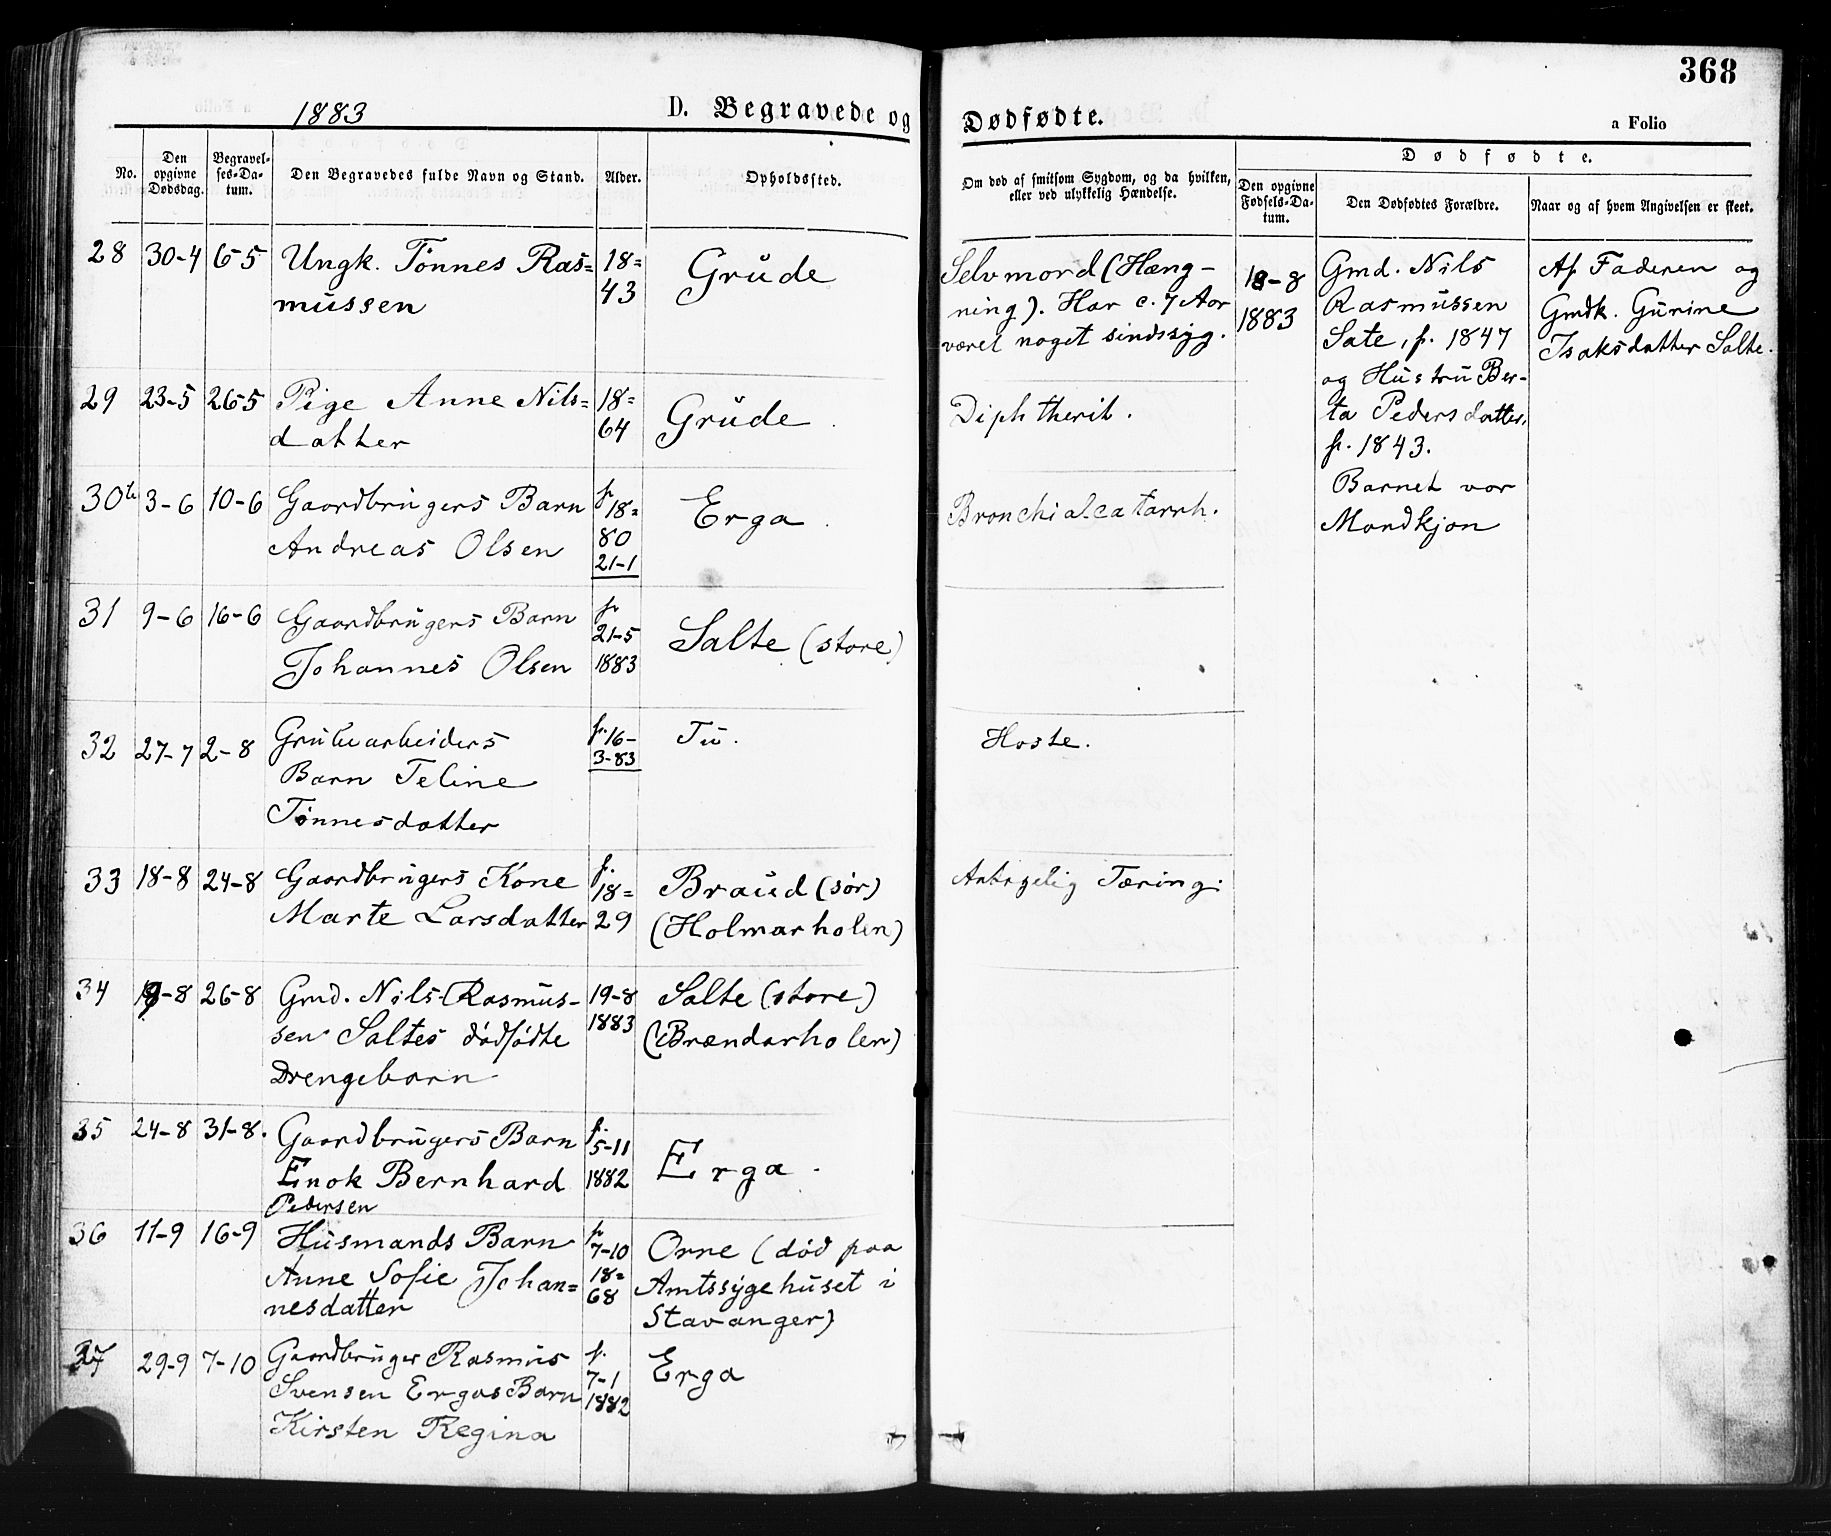 368
1883
D. Begravede og Dødfødte.
a Folio
No.
Den opgivne Dødsdag.
Begravelses-Datum.
Den Begravedes fulde Navn og Stand.
Alder.
Opholdssted.
Om død af smitsom Sygdom, og da hvilken,
eller ved ulykkelig Hændelse.
Dødfødte.
Den opgivne Fødsels-Datum.
Den Dødfødtes Forældre.
Naar og af hvem Angivelsen er skeet.
28 30-4 6-5 Ungk. Tønnes Ras= 18= Grude
mussen 43
Selvmord (Hæng-
ning). Har c. 7 Aar
været noget sindssyg.
19-8
1883
Gmd. Nils
Rasmussen
Sate, f. 1847
og Hustru Ber-
ta Pedersdatter,
f. 1843.
Barnet var
Mandkjøn
Af Faderen og
Gmdk. Gurine
Isaksdatter Salte.
29 23-5 26-5 Pige Anne Nils= 18= Grude.
datter 64
Diphtherit.
30 3-6 10-6 Gaardbrugers Barn f 18= Erga.
Andreas Olsen 80
21-1
Bronchialcatarrh.
31 9-6 16-6 Gaardbrugers Barn f 21-5 Salte (store)
Johannes Olsen 1883
32 27-7 2-8 Grubearbeiders f. 16- Tu.
Barn Teline 3-83
Tønnesdatter
Hoste.
33 18-8 24-8 Gaardbrugers Kone f. 18= Braud (sør)
Marte Larsdatter 29 (Holmarholen)
Antagelig Tæring.
34 19-8 26-8 Gmd. Nils Rasmus- 19-8 Salte (store)
sen Saltes dødfødte 1883 (Brændarholen)
Drengebarn
35 24-8 31-8. Gaardbrugers Barn f. 5-11 Erga.
Enok Bernhard 1882
Pedersen
36 11-9 16-9 Husmands Barn f 7-10 Orre (død paa
Anne Sofie Johan= 18= Amtssygehuset i
nesdatter 68 Stavanger)
37 29-9 7-10 Gaardbruger Rasmus f. Erga
Svensen Ergas Barn 7-1
Kirsten Regina 1882